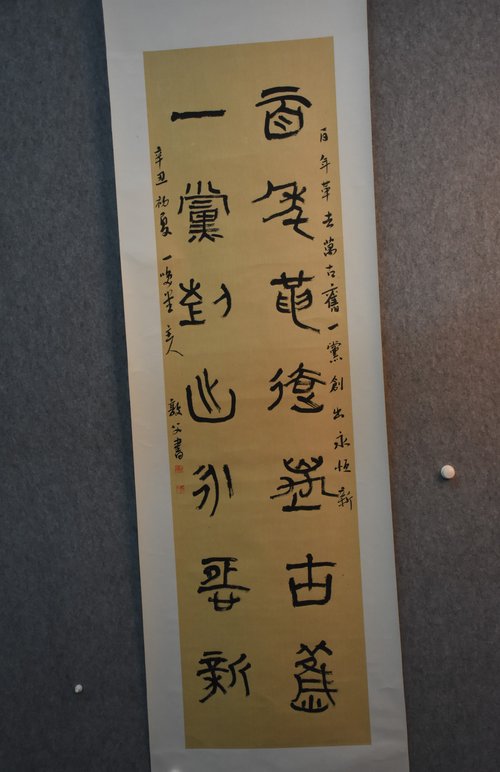 百年革去萬古舊一黨創出永恒新
百年革去萬古舊
一黨創出永恒新
辛丑初夏一堂主人
敦父書